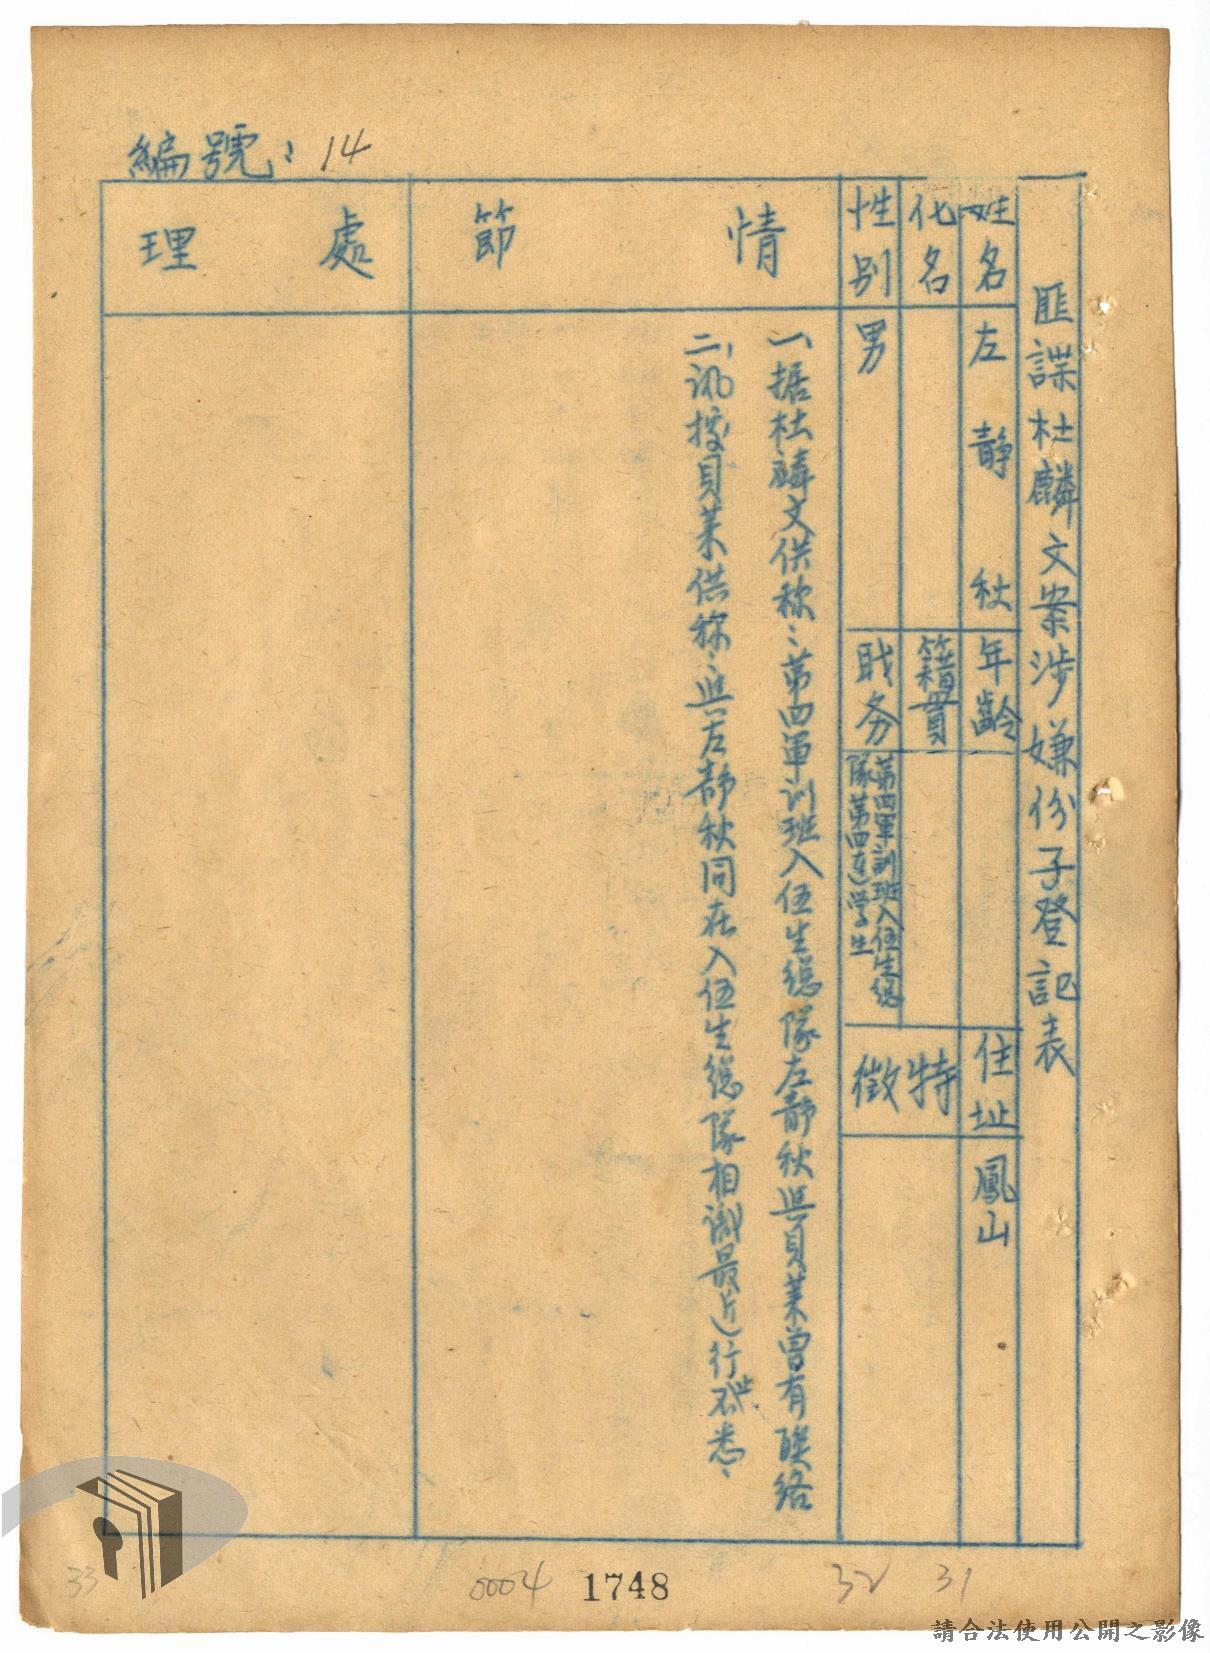 編號：14
匪諜杜麟文案涉嫌份子登記表
姓名
左靜秋
年齡
住址
鳳山
化名
籍貫
特徵
性別
男
職务
第四軍訓班入伍生總
隊第四連學生
情節
一、据杜麟文供称：第四軍训班入伍生總隊左靜秋與貝萊曾有联络
二、訊據貝萊供称：與左靜秋同在入伍生總隊相識最近行
處理
33
0004
1748
32
31
請合法使用公開之影像